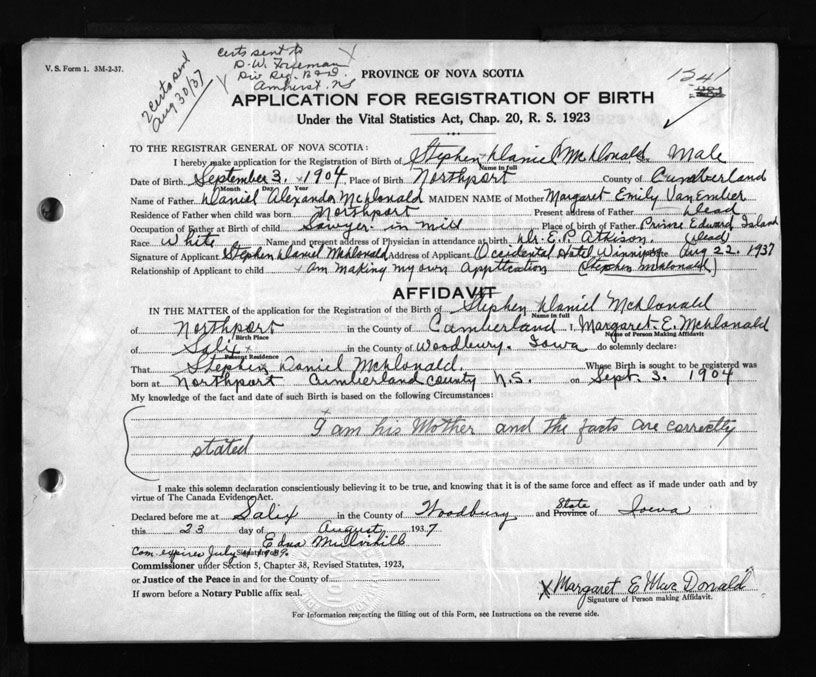 V. S. Form 1. 3M-2-37.
2 certs sent
Aug 30/37
certs sent to
D. W. Freeman
Div Reg. B & D.
Amherst, N.S.
PROVINCE OF NOVA SCOTIA
1341
APPLICATION FOR REGISTRATION OF BIRTH
Under the Vital Statistics Act, Chap. 20, R. S. 1923
TO THE REGISTRAR GENERAL OF NOVA SCOTIA:
I hereby make application for the Registration of Birth of Stephen Daniel McDonald. Male
Name in full
Date of Birth September 3. 1904. Place of Birth Northport County of Cumberland
Month Day Year
Name of Father Daniel Alexander McDonald MAIDEN NAME of Mother Margaret Emily Van Ember
Residence of Father when child was born Northport Present address of Father Dead
Occupation of Father at Birth of child Sawyer in mill Place of birth of Father Prince Edward Island
Race White Name and present address of Physician in attendance at birth Dr. E. P. Atkison. (dead)
Signature of Applicant Stephen Daniel McDonald Address of Applicant Occidental Hotel Winnipeg Date Aug 22. 1937
Relationship of Applicant to child I am making my own application (Stephen McDonald)
AFFIDAVIT
IN THE MATTER of the application for the Registration of the Birth of Stephen Daniel McDonald
Name in full
of Northport in the County of Cumberland I, Margaret E. McDonald
Birth Place Name of Person Making Affidavit
of Salix in the County of Woodbury. Iowa do solemnly declare:
Present Residence
That Stephen Daniel McDonald. Whose Birth is sought to be registered was
born at Northport Cumberland County N.S. on Sept. 3. 1904
My knowledge of the fact and date of such Birth is based on the following Circumstances:
I am his Mother and the facts are correctly
stated
I make this solemn declaration conscientiously believing it to be true, and knowing that it is of the same force and effect as if made under oath and by
virtue of The Canada Evidence Act.
Declared before me at Salix in the County of Woodbury and State Province of Iowa
this 23 day of August 1937
Edna Mulvihill
Com. expires July 4 1939. Signature
Commissioner under Section 5, Chapter 38, Revised Statutes, 1923,
or Justice of the Peace in and for the County of
If sworn before a Notary Public affix seal.
X Margaret E MacDonald
Signature of Person making Affidavit.
For Information respecting the filling out of this Form, see Instructions on the reverse side.